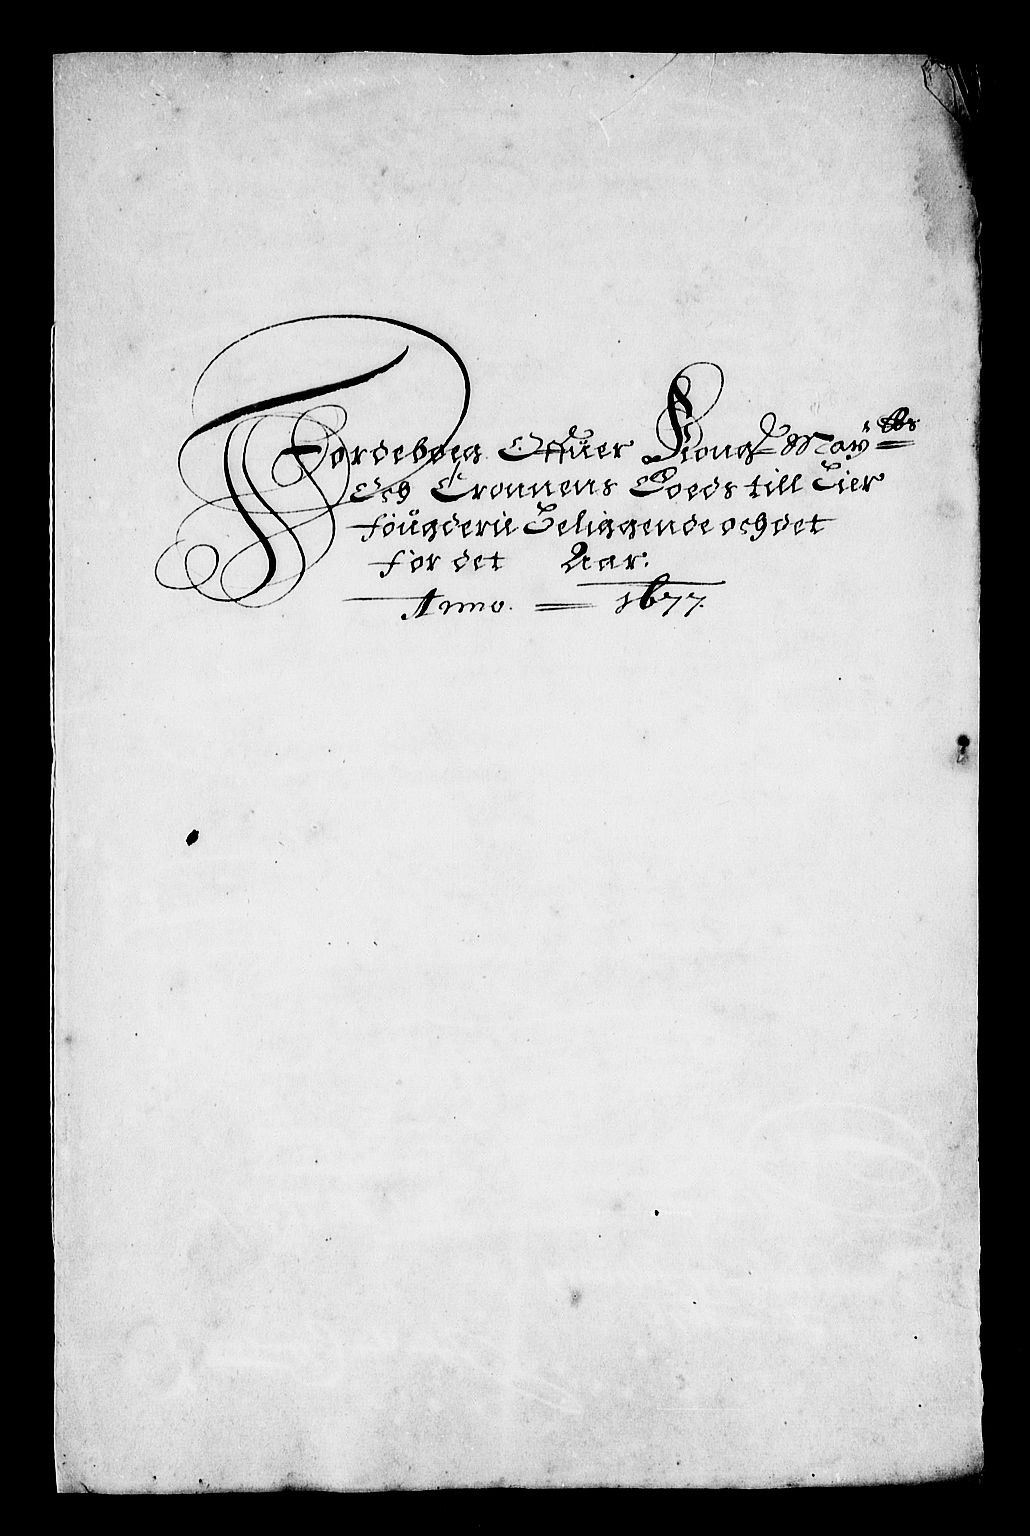 Jordeboeg Offuer Kongl Mayts
Och Cronnens Goeds till Lier
fougderie Beliggende och det
for det Aar:
Anno. 1677.